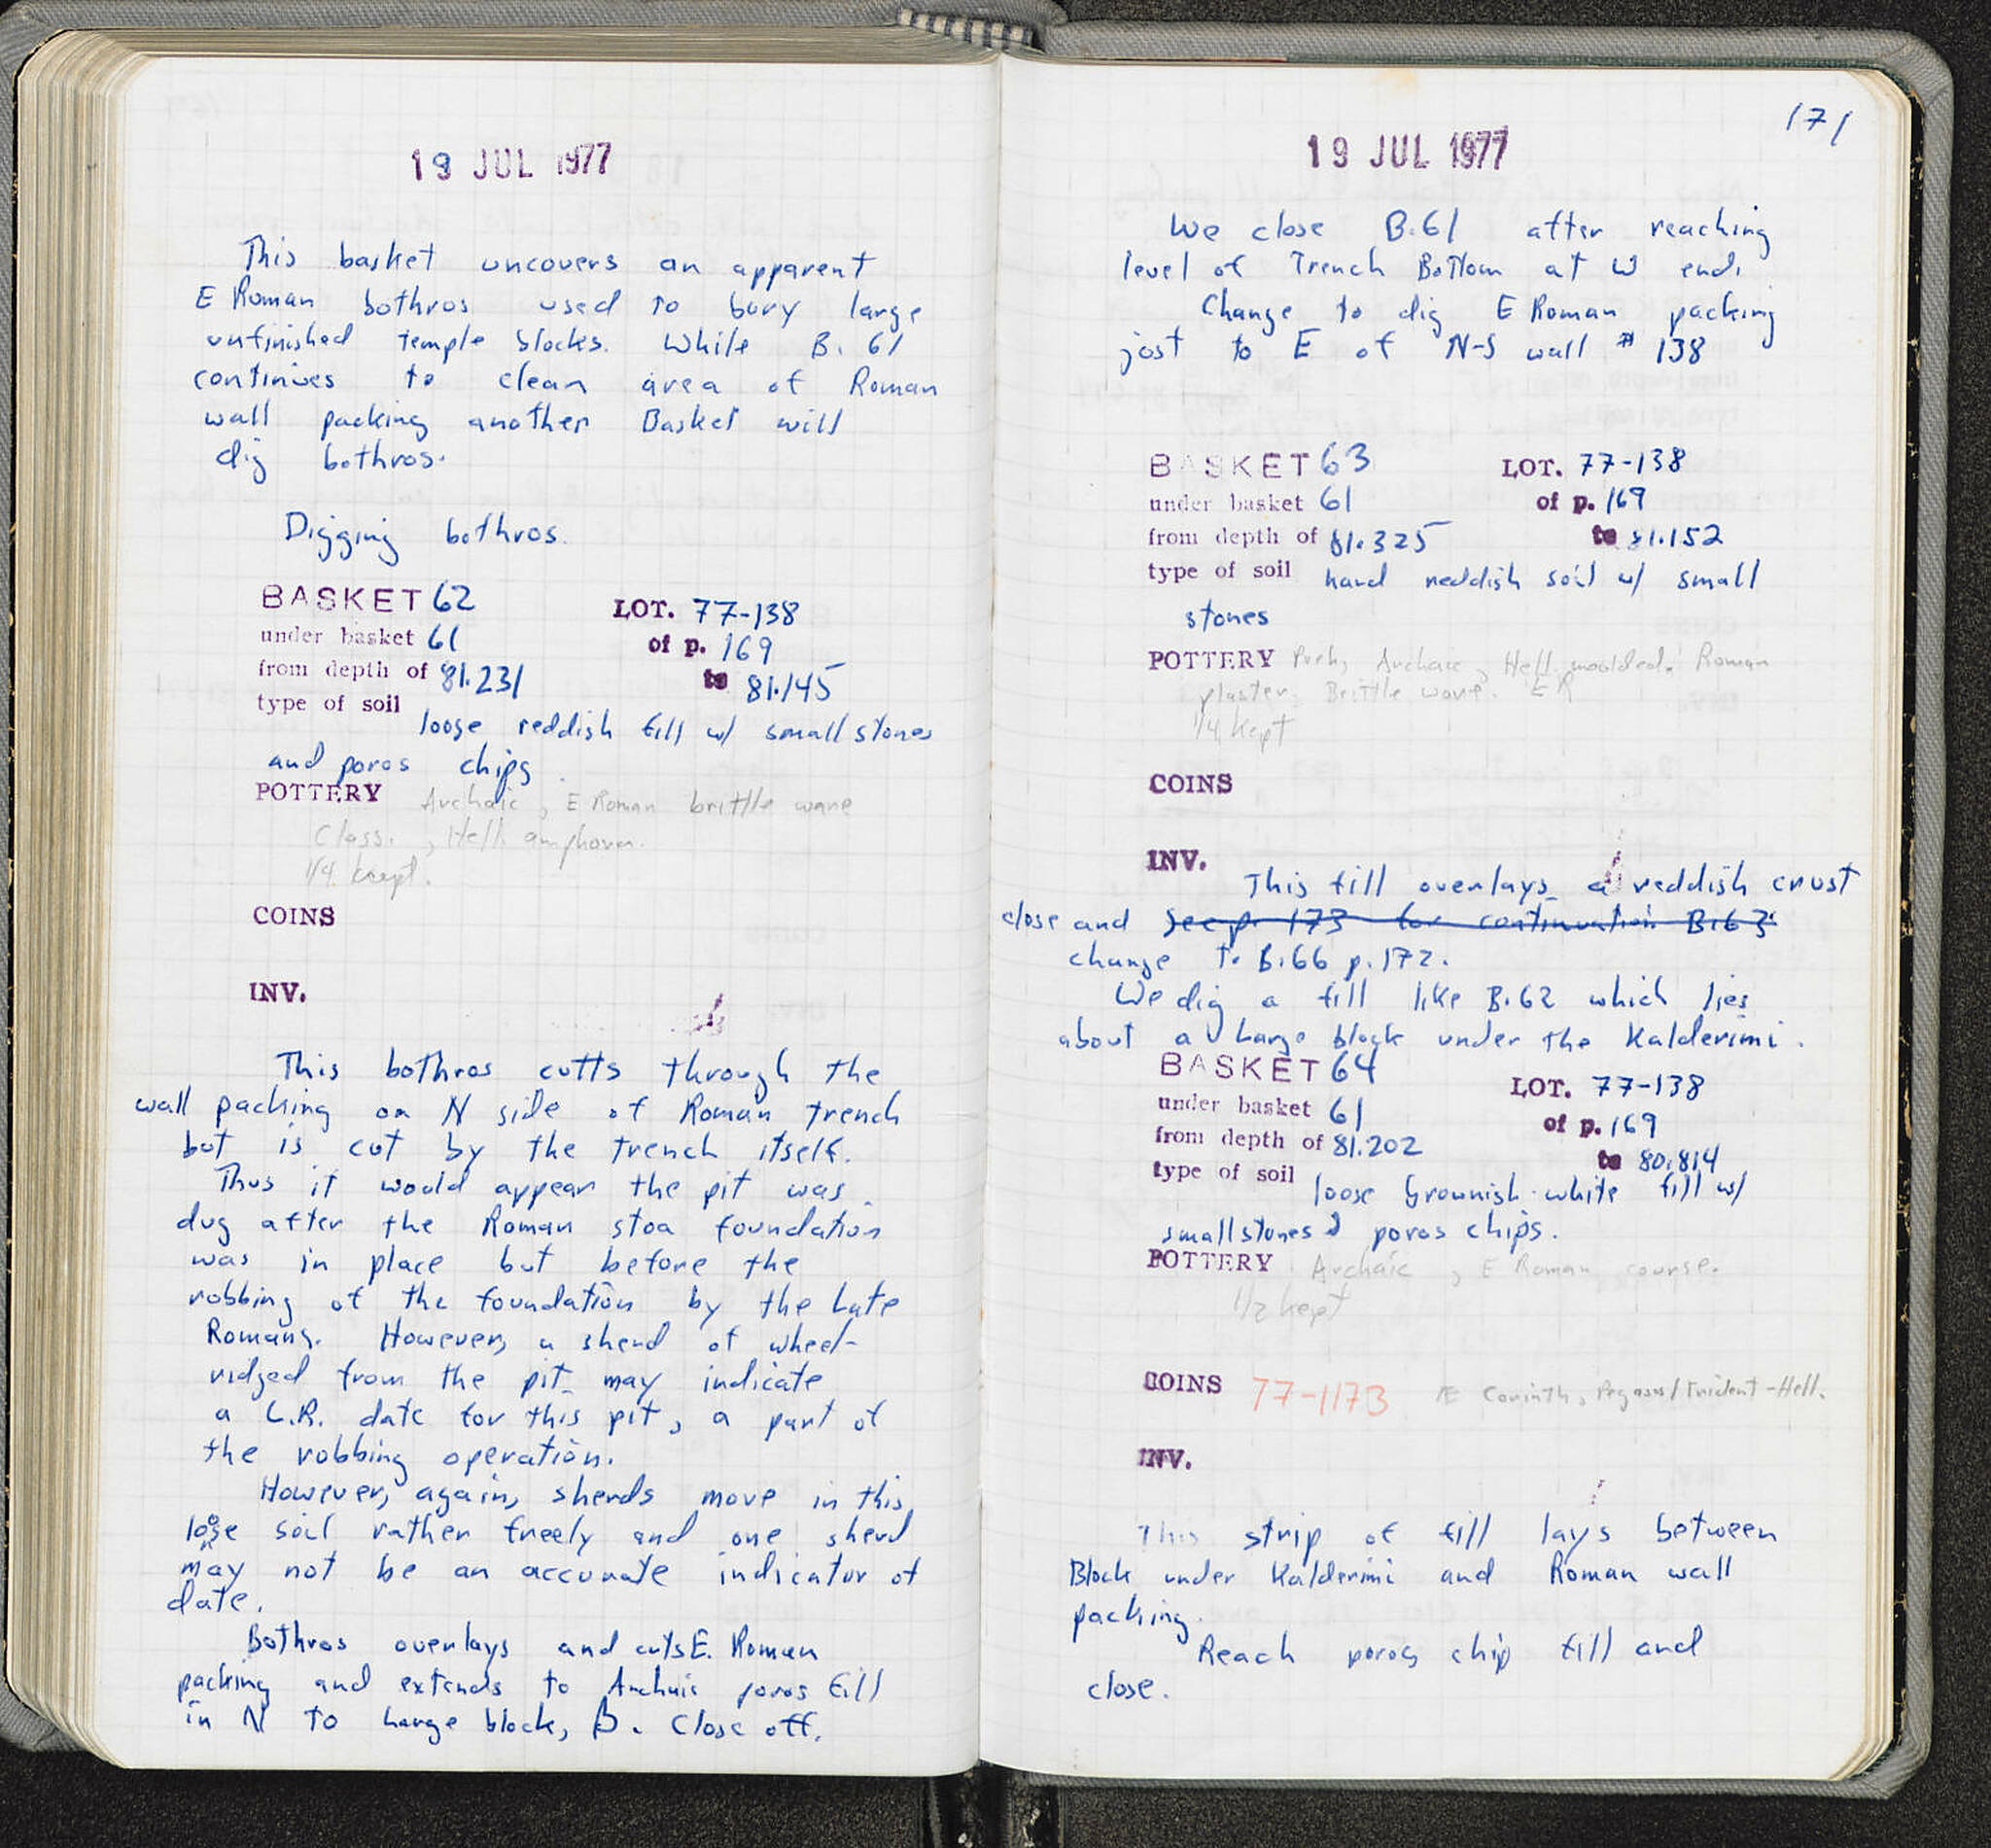 19 JUL 1977
This basket uncovers an apparent
E Roman bothros used to bury large
unfinished temple blocks. While B. 61
continues to clean area of Roman
wall packing another Basket will
dig bothros.
Digging bothros.
BASKET 62 LOT. 77-138
under basket 61 of p. 169
from depth of 81.231 to 81.145
type of soil
loose reddish fill w/ small stones
and poros chips.
POTTERY Archaic, E Roman brittle ware
Class., Hell. amphora.
1/4 kept.
COINS
INV.
This bothros cutts through the
wall packing on N side of Roman trench
but is cut by the trench itself.
Thus it would appear the pit was
dug after the Roman stoa foundation
was in place but before the
robbing of the foundation by the Late
Romans. However, a sherd of wheel-
ridged from the pit may indicate
a L.R. date for this pit, a part of
the robbing operation.
However, again, sherds move in this
loose soil rather freely and one sherd
may not be an accurate indicator of
date.
Bothros overlays and cuts E. Roman
packing and extends to Archaic poros fill
in N to large block, B. Close off.
171
19 JUL 1977
We close B.61 after reaching
level of Trench Bottom at W end.
Change to dig E Roman packing
just to E of N-S wall # 138
BASKET 63 LOT. 77-138
under basket 61 of p. 169
from depth of 81.325 to 81.152
type of soil hard reddish soil w/ small
stones
POTTERY Archaic, Hell. moulded. Roman
plaster. Brittle ware. ER
1/4 kept
COINS
INV.
This fill overlays a reddish crust
close and See p. 173 for continuation B.63
change to B.66 p. 172.
We dig a fill like B.62 which lies
about a Large block under the Kalderimi.
BASKET 64 LOT. 77-138
under basket 61 of p. 169
from depth of 81.202 to 80.814
type of soil loose brownish-white fill w/
small stones & poros chips.
POTTERY Archaic, E Roman course.
1/2 kept
COINS 77-1173 Æ Corinth, Pegasus/Trident - Hell.
INV.
This strip of fill lays between
Block under Kalderimi and Roman wall
packing.
Reach poros chip fill and
close.